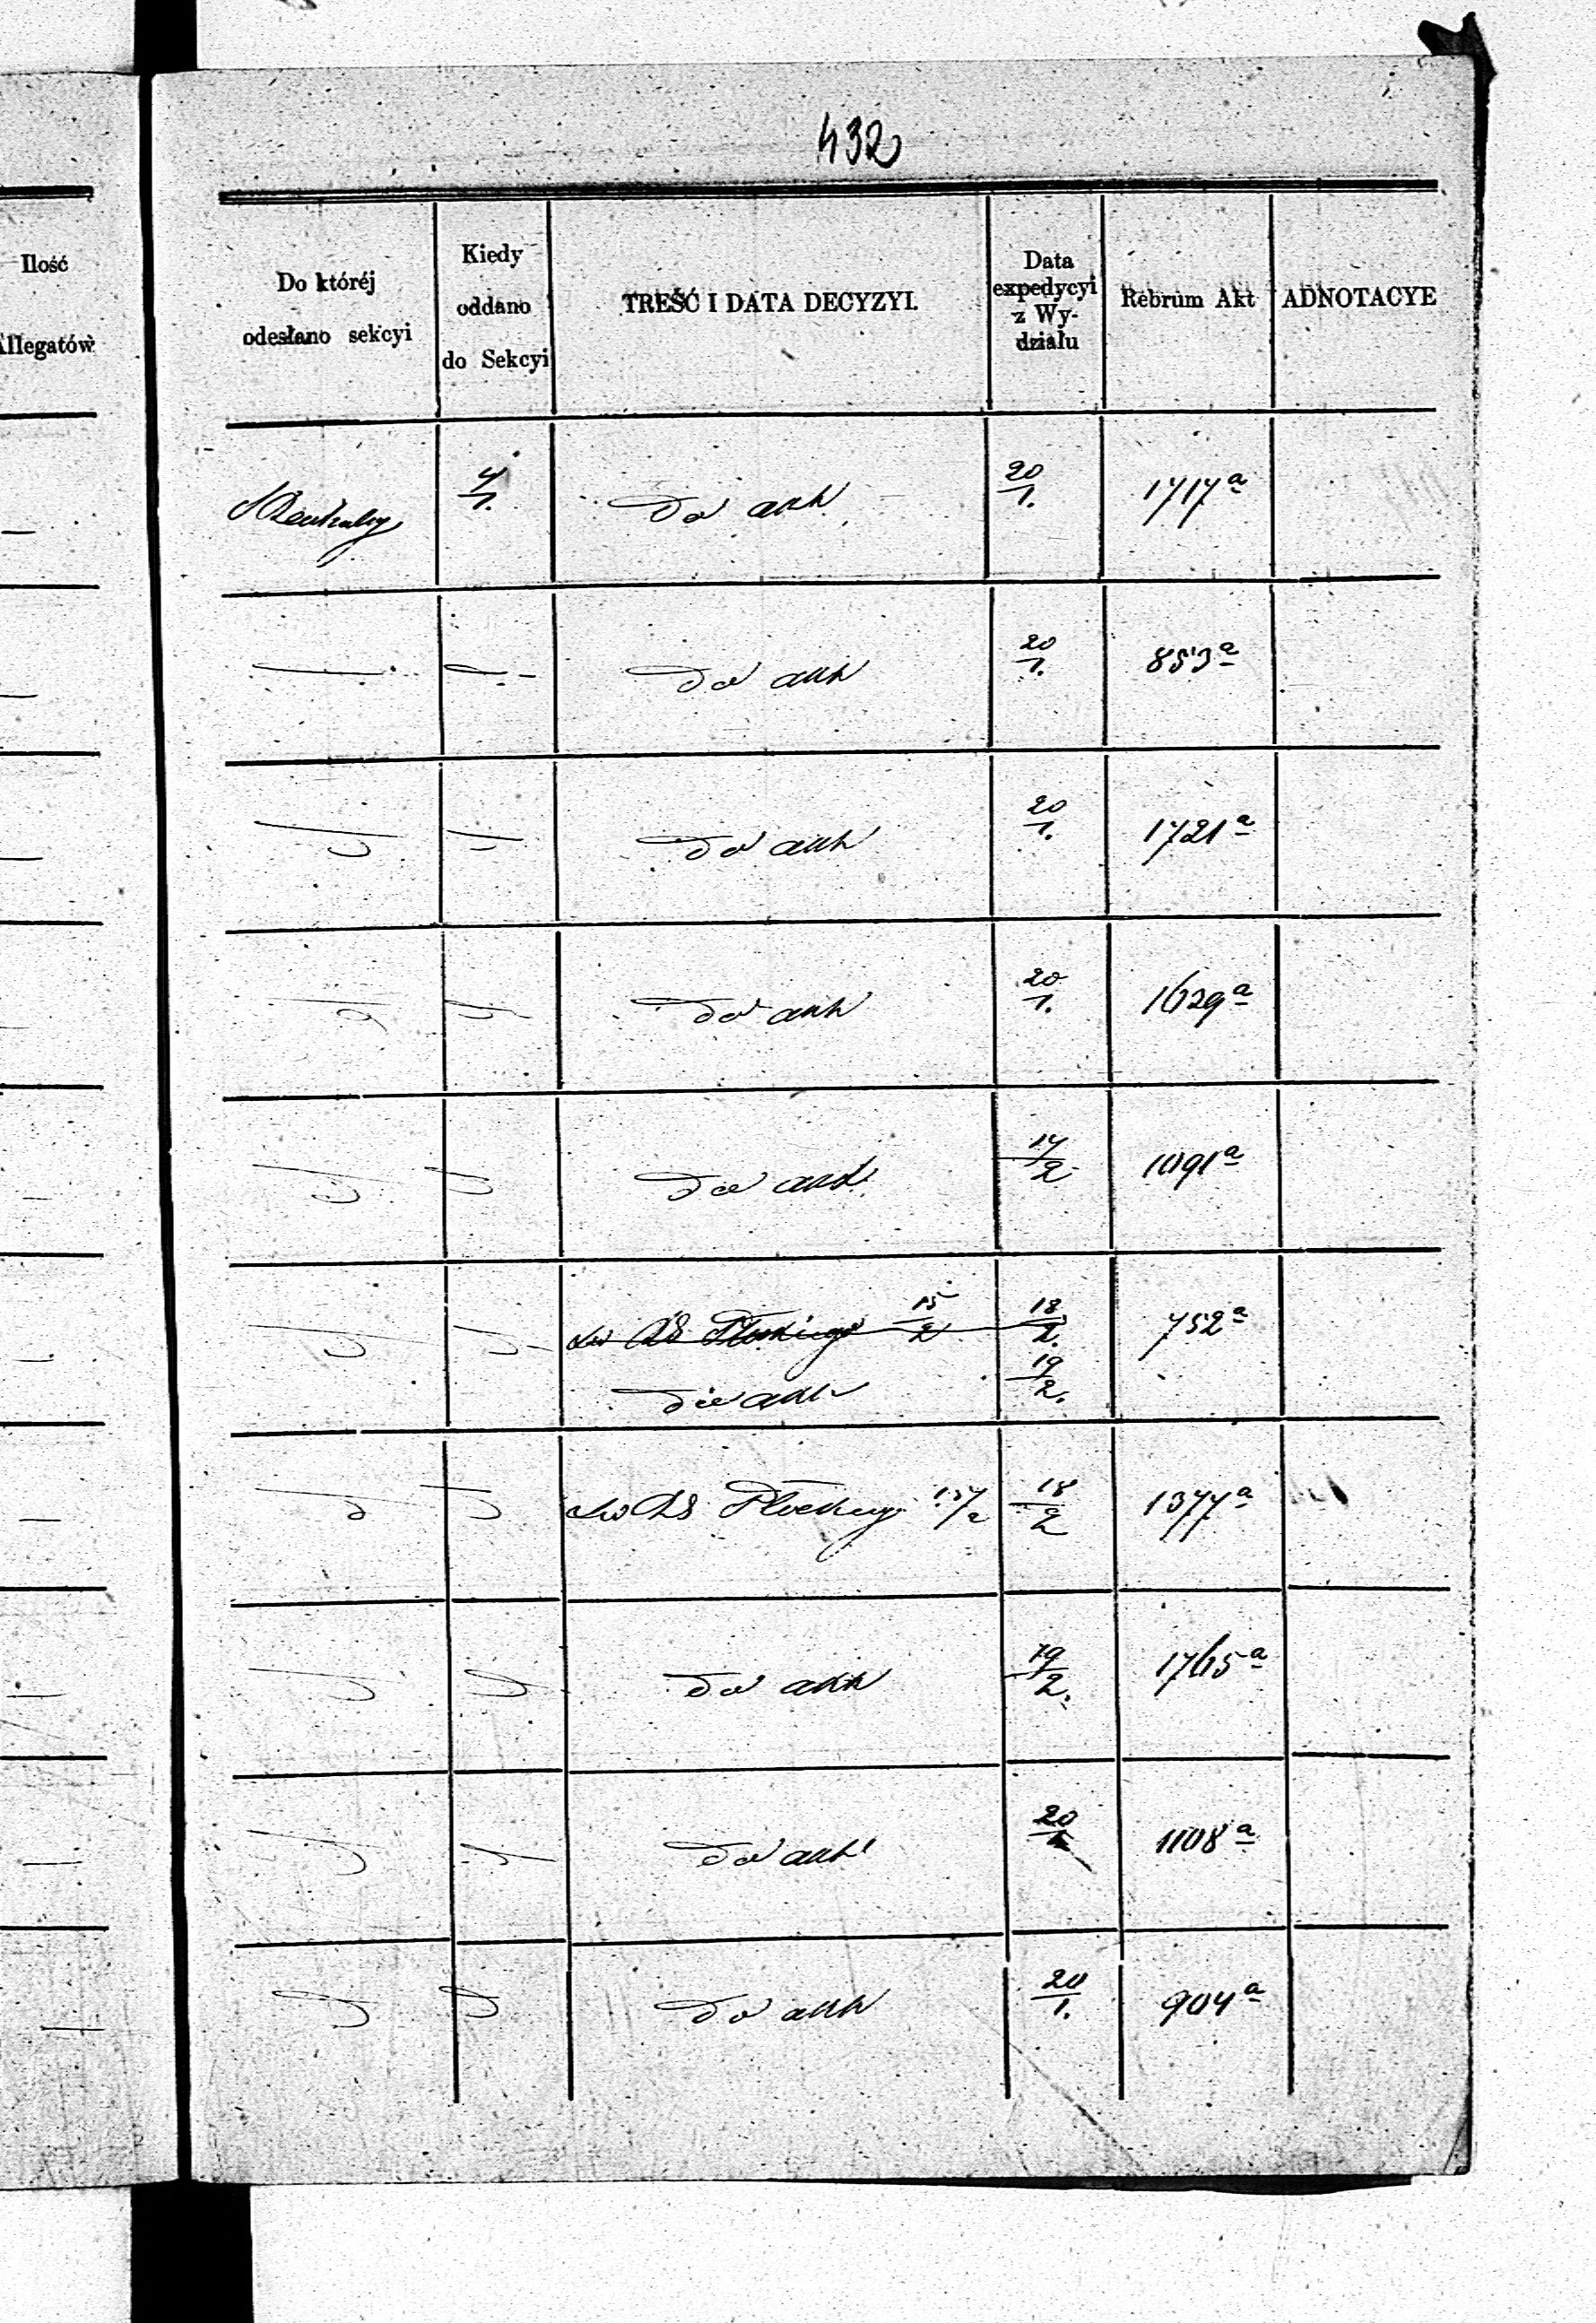 432
Ilość
Allegatów
Do któréj
odesłano sekcyi
Kiedy
oddano
do Sekcyi
TREŚĆ I DATA DECYZYI.
Data
expedycyi
z Wy-
działu
Rebrum Akt
ADNOTACYE
4/1. Do akt 20/1. 1717a
Do akt 20/1. 853a
Do akt 20/1. 1721a
Do akt 20/1. 1629a
Do akt 17/2 1091a
15/2 18/2. 752a
Do akt 19/2.
18/2 1377a
Do akt 19/2. 1765a
Do akt 20/1 1108a
Do akt 20/1. 904a